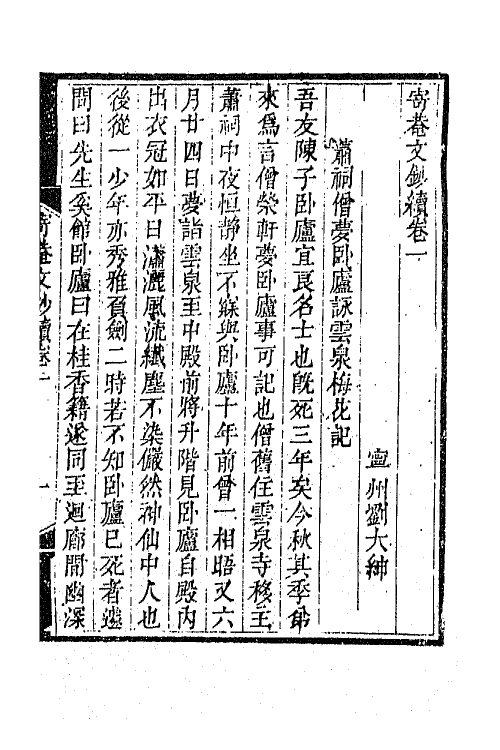 寄菴文鈔續卷一
甯州劉大紳
蕭祠僧夢卧廬詠雲泉梅花記
吾友陳子卧廬宜良名士也旣死三年矣今秋其季弟
來爲言僧榮軒夢卧廬事可記也僧舊住雲泉寺移主
蕭祠中夜恒静坐不寐與卧廬十年前曾一相晤又六
月廿四日夢詣雲泉至中殿前將升階見卧廬自殿内
出衣冠如平日瀟灑風流纖塵不染儼然神仙中人也
後從一少年亦秀雅負劍二時若不知卧廬已死者遽
問曰先生奚館卧廬曰在桂香籍遂同至迴廊間幽深
寄菴文鈔續卷一
一